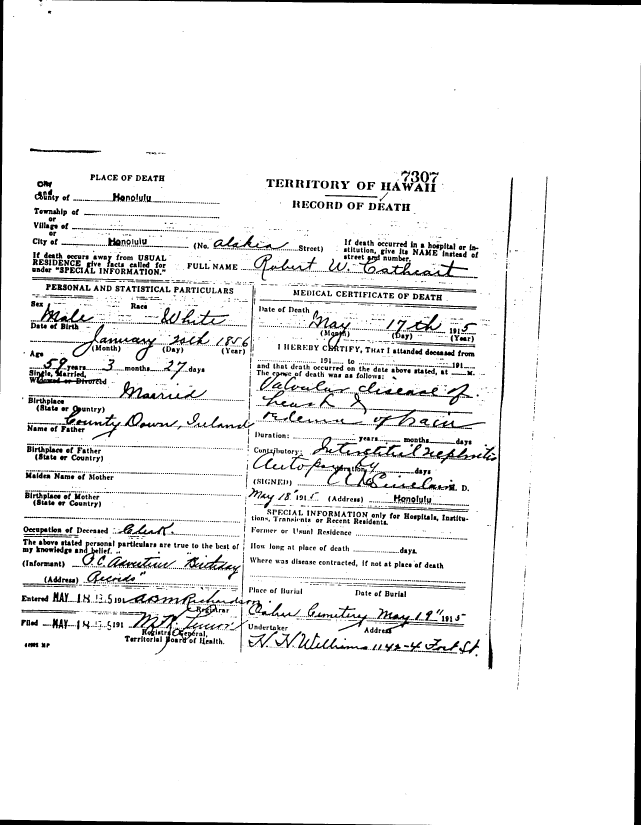 7307
PLACE OF DEATH
TERRITORY OF HAWAII
RECORD OF DEATH
City and County of Honolulu
Township of
or
Village of
or
City of Honolulu (No. Alakea Street)
If death occurred in a hospital or institution, give its NAME instead of street and number.
If death occurs away from USUAL RESIDENCE give facts called for under "SPECIAL INFORMATION."
FULL NAME Robert W. Cathcart
PERSONAL AND STATISTICAL PARTICULARS
Sex Male Race White
Date of Birth January 20th 1856
(Month) (Day) (Year)
Age
59 years 3 months 27 days
Single, Married, Widowed or Divorced Married
Birthplace
(State or Country) County Down, Ireland
Name of Father
Birthplace of Father
(State or Country)
Maiden Name of Mother
Birthplace of Mother
(State or Country)
Occupation of Deceased Clerk.
The above stated personal particulars are true to the best of my knowledge and belief.
(Informant) "Birthday
(Address) Records"
Entered MAY 18 1915 191 Richardson
Registrar
Filed MAY 18 1915 191
Registrar General,
Territorial Board of Health.
MEDICAL CERTIFICATE OF DEATH
Date of Death
May 17th 1915
(Month) (Day) (Year)
I HEREBY CERTIFY, THAT I attended deceased from
191 to 191
and that death occurred on the date above stated, at M.
The cause of death was as follows:
Valvular disease of
heart &
oedema of brain
Duration: years months days
Contributory: Interstitial nephritis
Autopsy (Duration) days
(SIGNED) Sinclair M. D.
May 18" 1915 (Address) Honolulu
SPECIAL INFORMATION only for Hospitals, Institutions, Transients or Recent Residents.
Former or Usual Residence
How long at place of death days.
Where was disease contracted, if not at place of death
Place of Burial Date of Burial
Oahu Cemetery May 19" 1915
Undertaker Address
H. H. Williams 1142-4 Fort St.